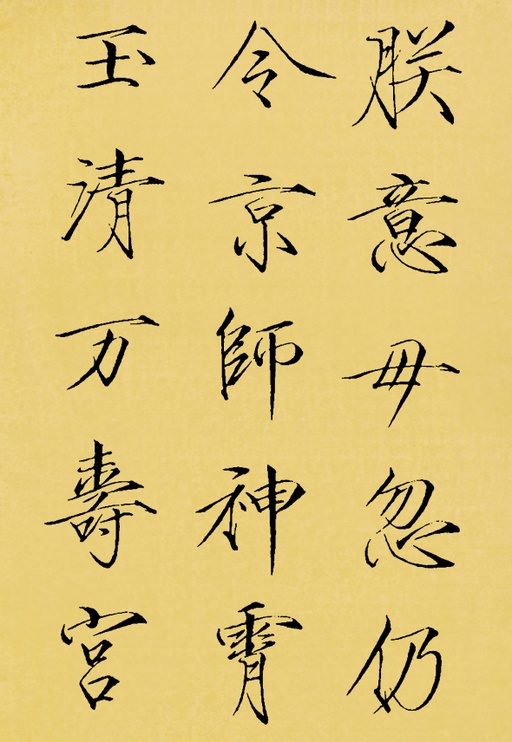 朕意毋忽仍
令京師神霄
玉清万壽宮